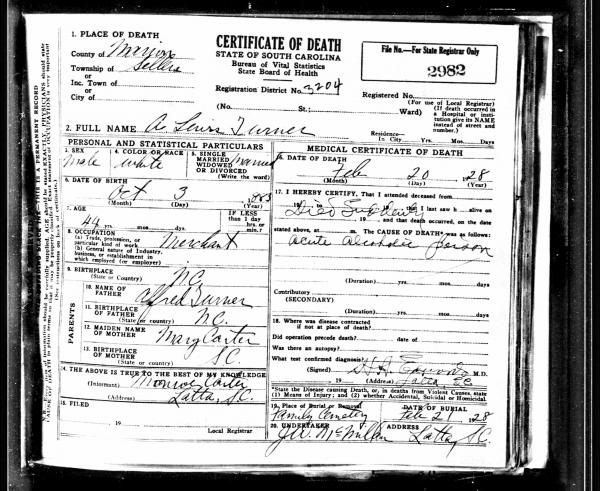 1. PLACE OF DEATH
County of Marion
Township of Sellers
or
Inc. Town of
or
City of
CERTIFICATE OF DEATH
STATE OF SOUTH CAROLINA
Bureau of Vital Statistics
State Board of Health
Registration District No. 3204
(No. St.; Ward)
File No.—For State Registrar Only
2982
Registered No.
(For use of Local Registrar)
(If death occurred in a Hospital or institution give its NAME instead of street and number.)
2. FULL NAME A. Lewis Turner
Residence—
In City Yrs. Mos. Days
PERSONAL AND STATISTICAL PARTICULARS
3. SEX
Male
4. COLOR OR RACE
White
5. SINGLE
MARRIED
WIDOWED
OR DIVORCED
(Write the word)
Married
6. DATE OF BIRTH
Oct 3 1883
(Month) (Day) (Year)
7. AGE
44 yrs. mos. days
IF LESS than 1 day hrs. or min.?
8. OCCUPATION
(a) Trade, profession, or particular kind of work
Merchant
(b) General nature of Industry, business, or establishment in which employed (or employer)
9. BIRTHPLACE
(State or Country)
N.C.
PARENTS
10. NAME OF FATHER
Alfred Turner
11. BIRTHPLACE OF FATHER
(State or country)
N.C.
12. MAIDEN NAME OF MOTHER
Mary Carter
13. BIRTHPLACE OF MOTHER
(State or country)
S.C.
14. THE ABOVE IS TRUE TO THE BEST OF MY KNOWLEDGE
(Informant) Monroe Carter
(Address) Latta, S.C.
15. FILED
19
Local Registrar
MEDICAL CERTIFICATE OF DEATH
Feb 20 1928
(Month) (Day) (Year)
17. I HEREBY CERTIFY, That I attended deceased from
19 to 19 that I last saw h alive on
Died Suddenly
19 and that death occurred, on the date
stated above, at m. The CAUSE OF DEATH* was as follows:
Acute Alcoholic poison
(Duration) yrs. mos. days
Contributory
(SECONDARY)
(Duration) yrs. mos. days
18. Where was disease contracted
if not at place of death?
Did operation precede death? date of
Was there an autopsy?
What test confirmed diagnosis?
(Signed) M.D.
19 (Address) Latta SC
*State the Disease causing Death, or, in deaths from Violent Causes, state
(1) Means of Injury; and (2) whether Accidental, Suicidal or Homicidal.
19. Place of Burial or Removal
Family Cemetery
DATE OF BURIAL
Feb 21 1928
20. UNDERTAKER
J.W. McMillan
ADDRESS
Latta, S.C.